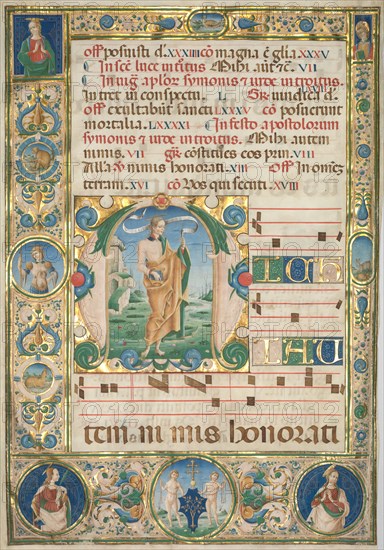 off posuisti d. XXXIII cō magna ē glia. XXXV
In scē luce in̄tus Mihi aut̄ ē. VII
In uig̓ aplor symonis ⁊ iude in̄troitus.
In tret in̄ conspectu L
off exultabūt sancti LXXXV cō posuerunt
mortalia. LXXXXI In festo apostolorum
symonis ⁊ iude in̄troitus. Mihi autem
nimis. VII XVIII
Alła nimis honorati. XIII off In omnē
terram. XVI cō Vos qui secuti. XVIII
M
ICH
IAU
tem ni mis honorati